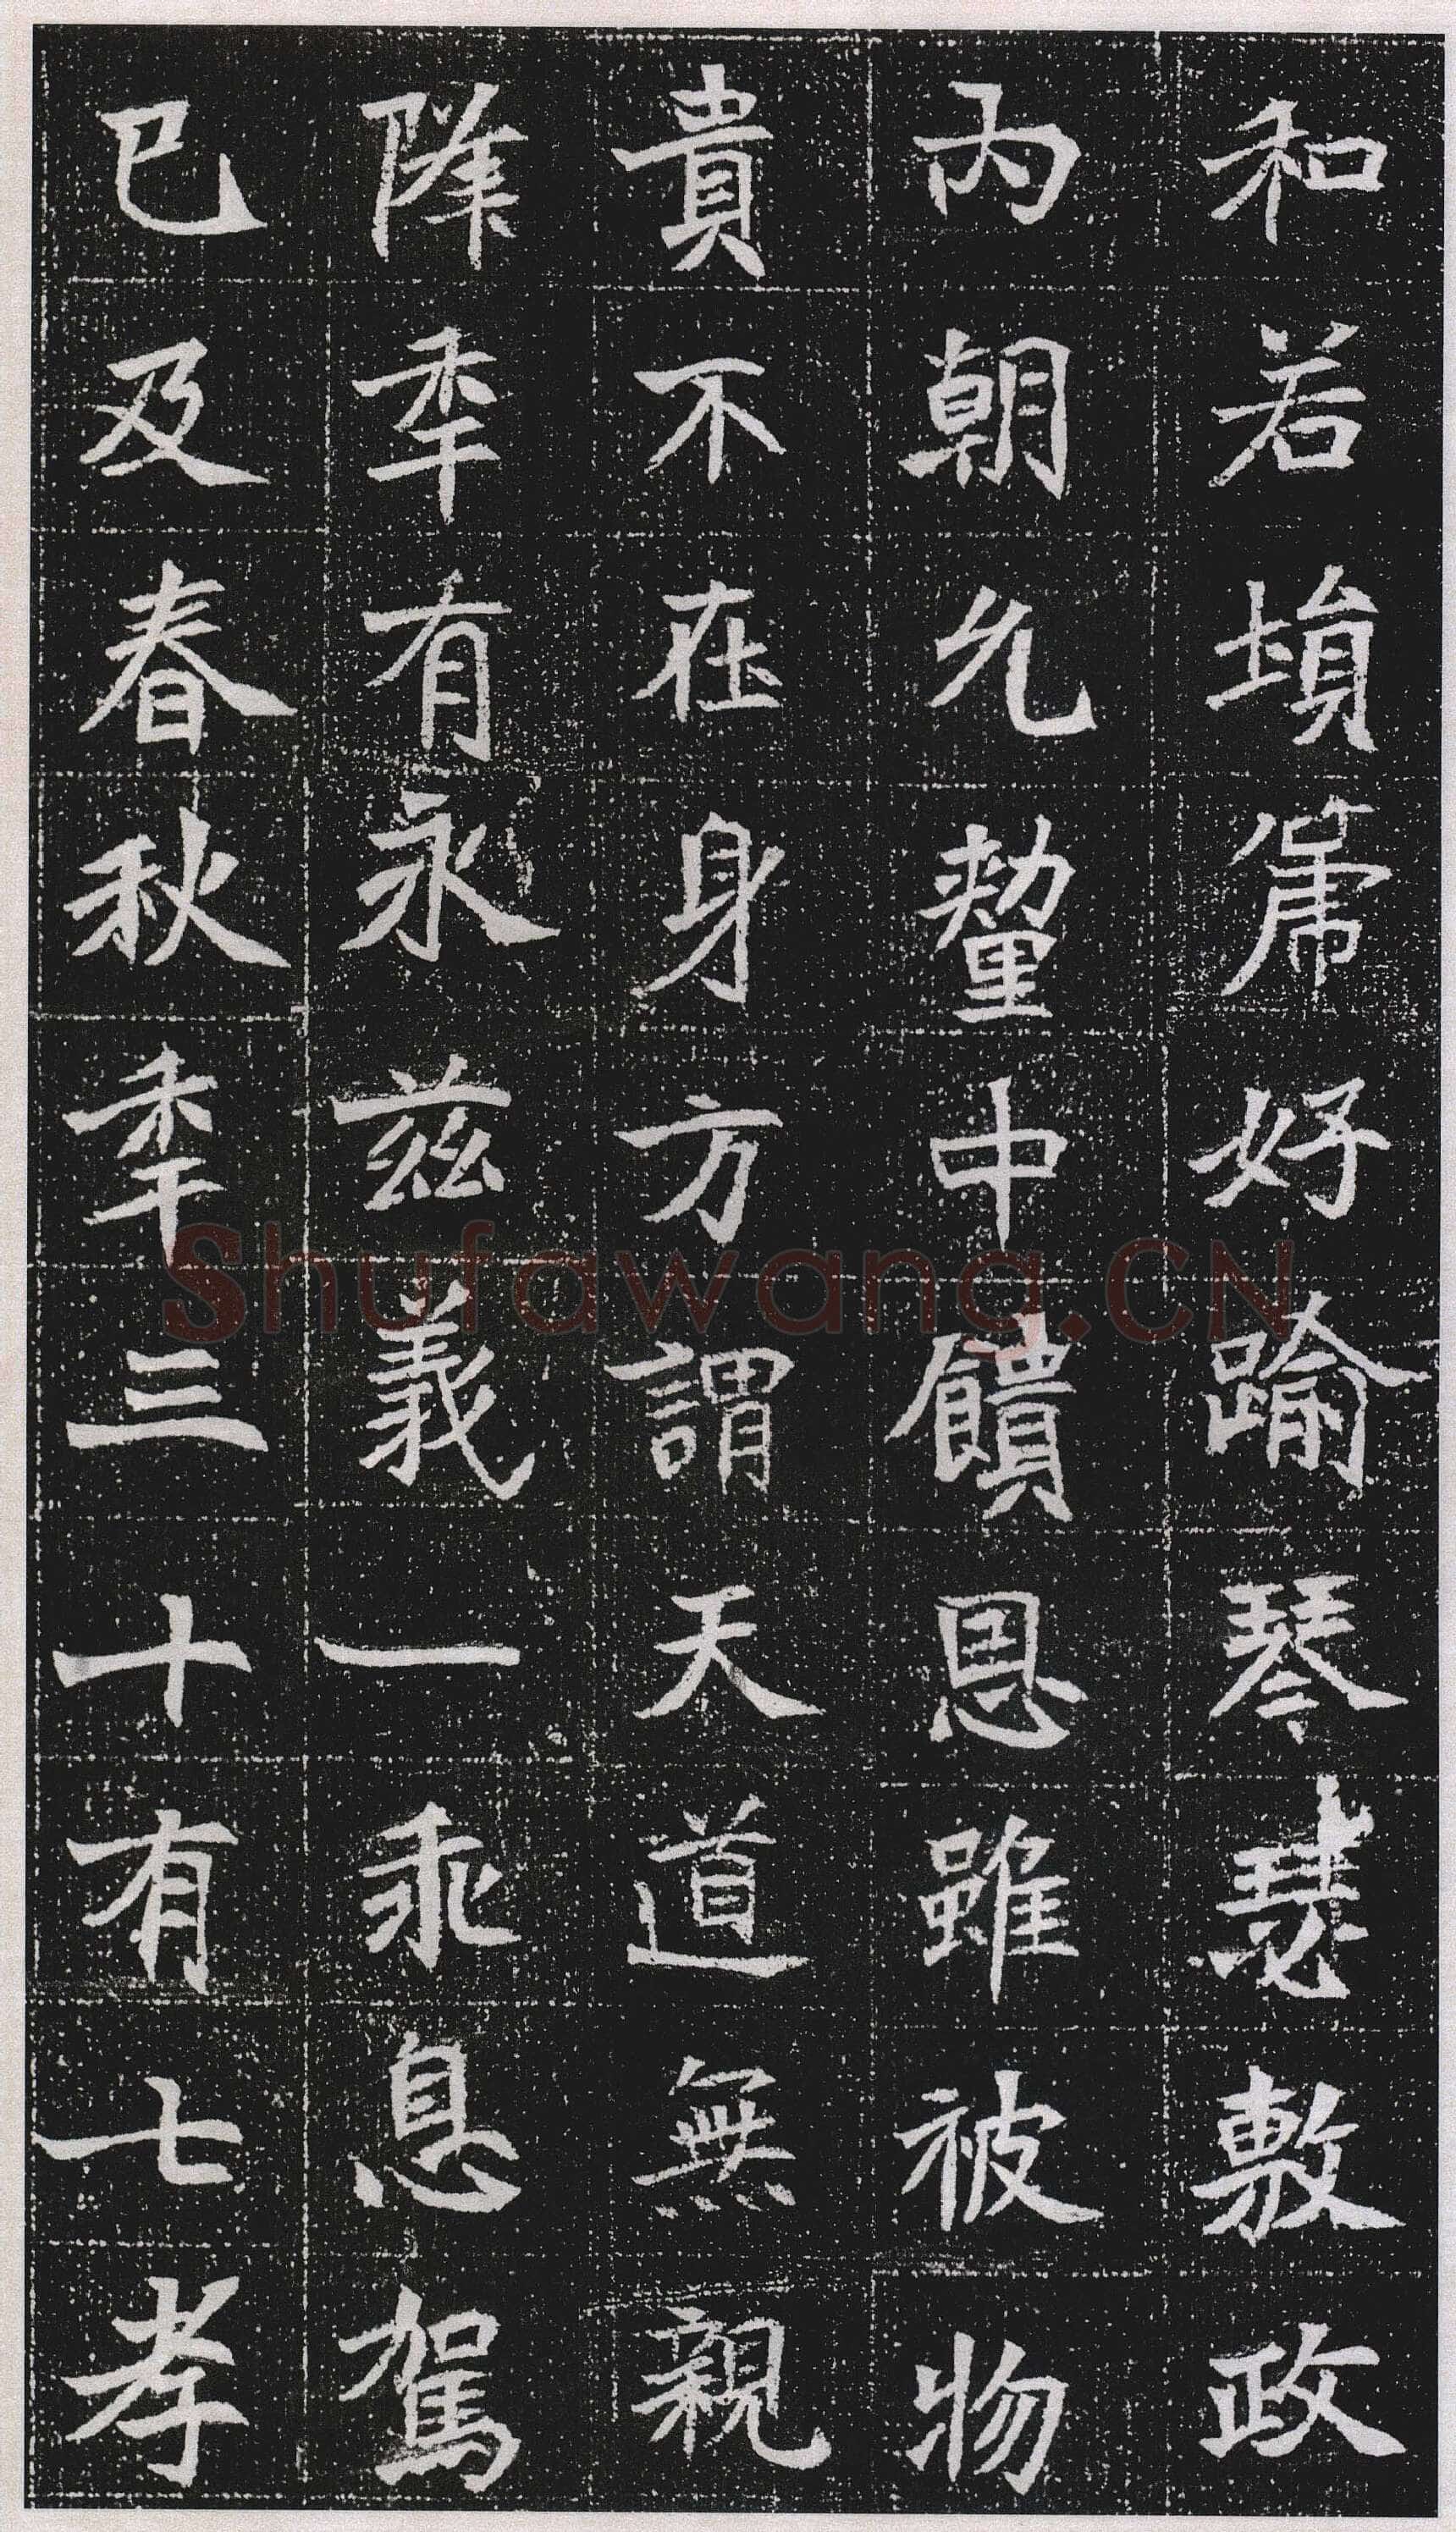 和若塤篪好踰琴瑟敷政
內朝允釐中饋恩雖被物
貴不在身方謂天道無親
降秊有永茲義一乖息駕
已及春秋秊三十有七孝
Shufawang.CN